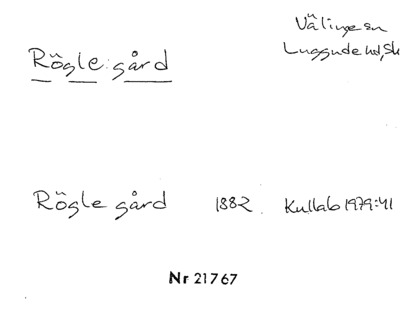 Rögle gård
Välinge sn
Luggude hd, Sk
Rögle gård 1882 Kullab 1979:41
Nr 21767